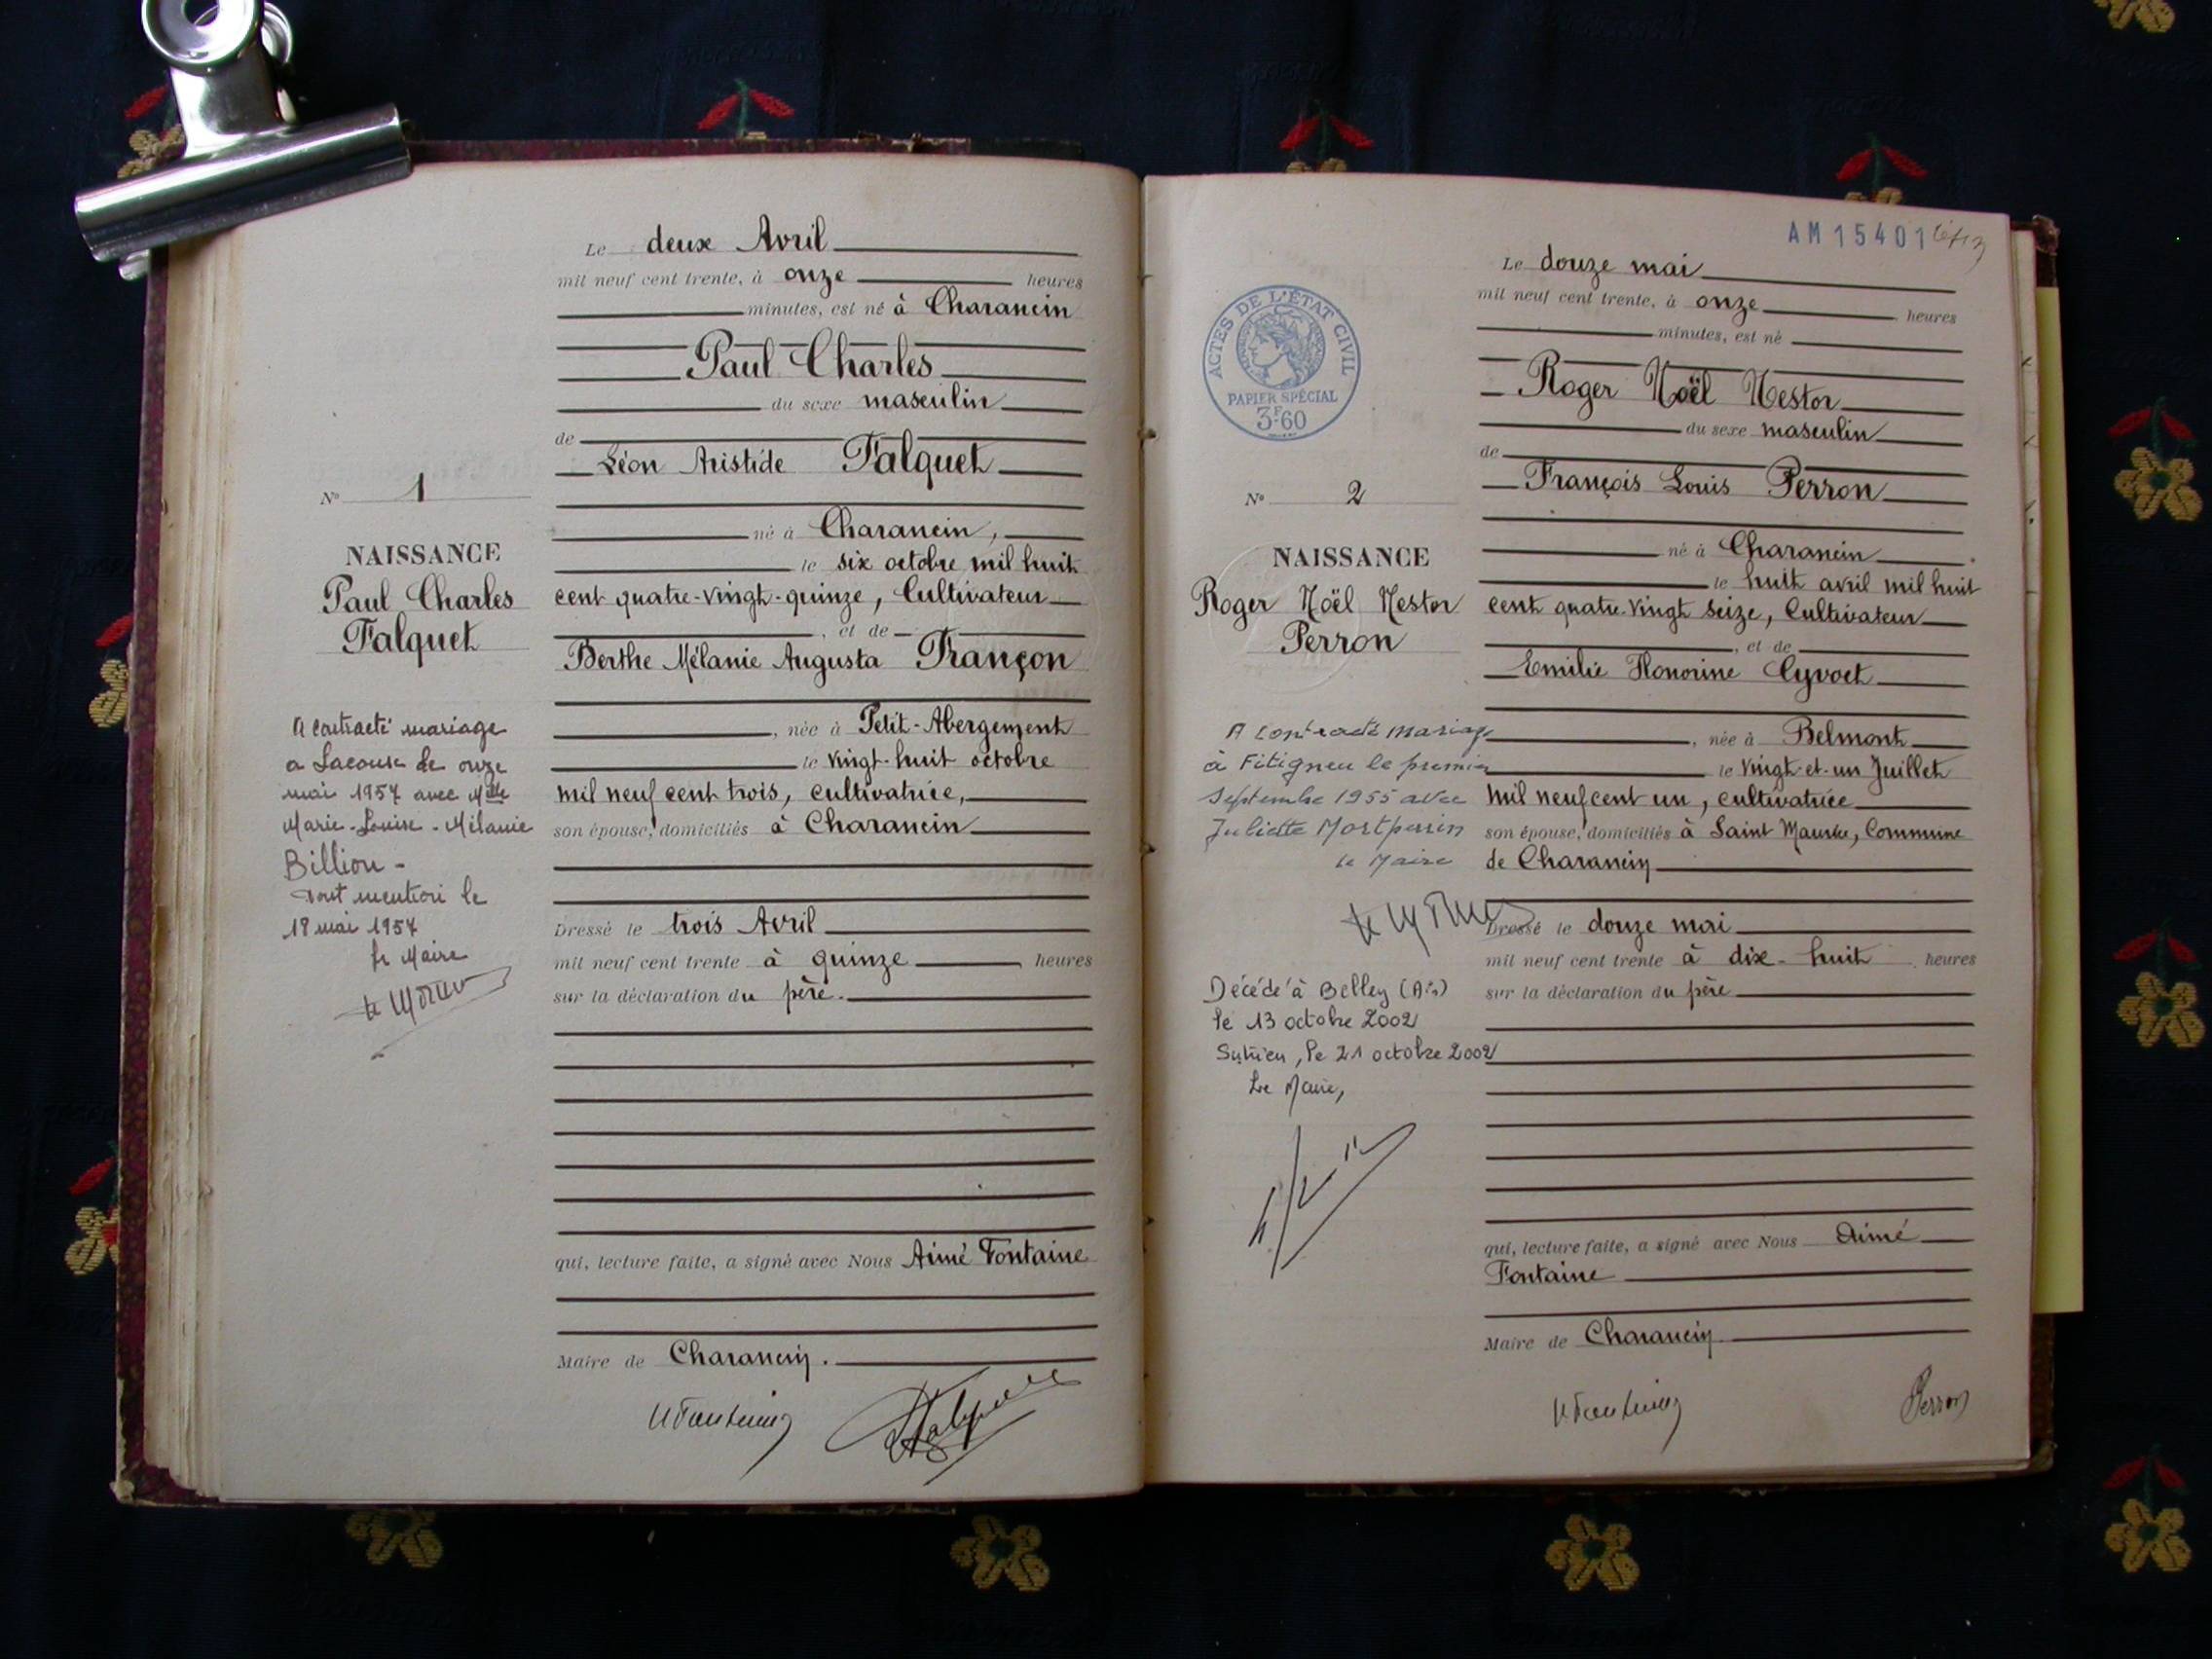 Le deux Avril
mil neuf cent trente, à onze heures
minutes, est né à Charancin
Paul Charles
du sexe masculin
de
Léon Aristide Falquet
né à Charancin,
le six octobre mil huit
cent quatre-vingt-quinze, Cultivateur
, et de
Berthe Mélanie Augusta Françon
, née à Petit-Abergement
le vingt-huit octobre
mil neuf cent trois, cultivatrice,
son épouse, domiciliés à Charancin
Dressé le trois Avril
mil neuf cent trente à quinze heures
sur la déclaration du père.
qui, lecture faite, a signé avec Nous Aimé Fontaine
Maire de Charancin.
No 1
NAISSANCE
Paul Charles
Falquet
A contracté mariage
a de onze
mai 1957 avec Mlle
Marie-Louise-Mélanie
Billion -
Dont mention le
18 mai 1957
le Maire
AM15401
Le douze mai
mil neuf cent trente, à onze heures
minutes, est né
Roger Noël Nestor
du sexe masculin
de
François Louis Perron
né à Charancin
le huit avril mil huit
cent quatre-vingt seize, Cultivateur
, et de
Emilie Honorine Cyvoct
, née à Belmont
le vingt-et-un Juillet
mil neuf cent un, cultivatrice
son épouse, domiciliés à Saint Maurice, Commune
de Charancin
Dressé le douze mai
mil neuf cent trente à dix-huit heures
sur la déclaration du père
qui, lecture faite, a signé avec Nous Aimé
Fontaine
Maire de Charancin
Perron
ACTES DE L'ÉTAT CIVIL
PAPIER SPÉCIAL
3F60
No 2
NAISSANCE
Roger Noël Nestor
Perron
A contracté mariage
à Fitignieu le premier
Septembre 1955 avec
Juliette Montperrin
le Maire
Décédé à Belley (Ain)
le 13 octobre 2002
Sutrieu, le 21 octobre 2002
Le Maire,